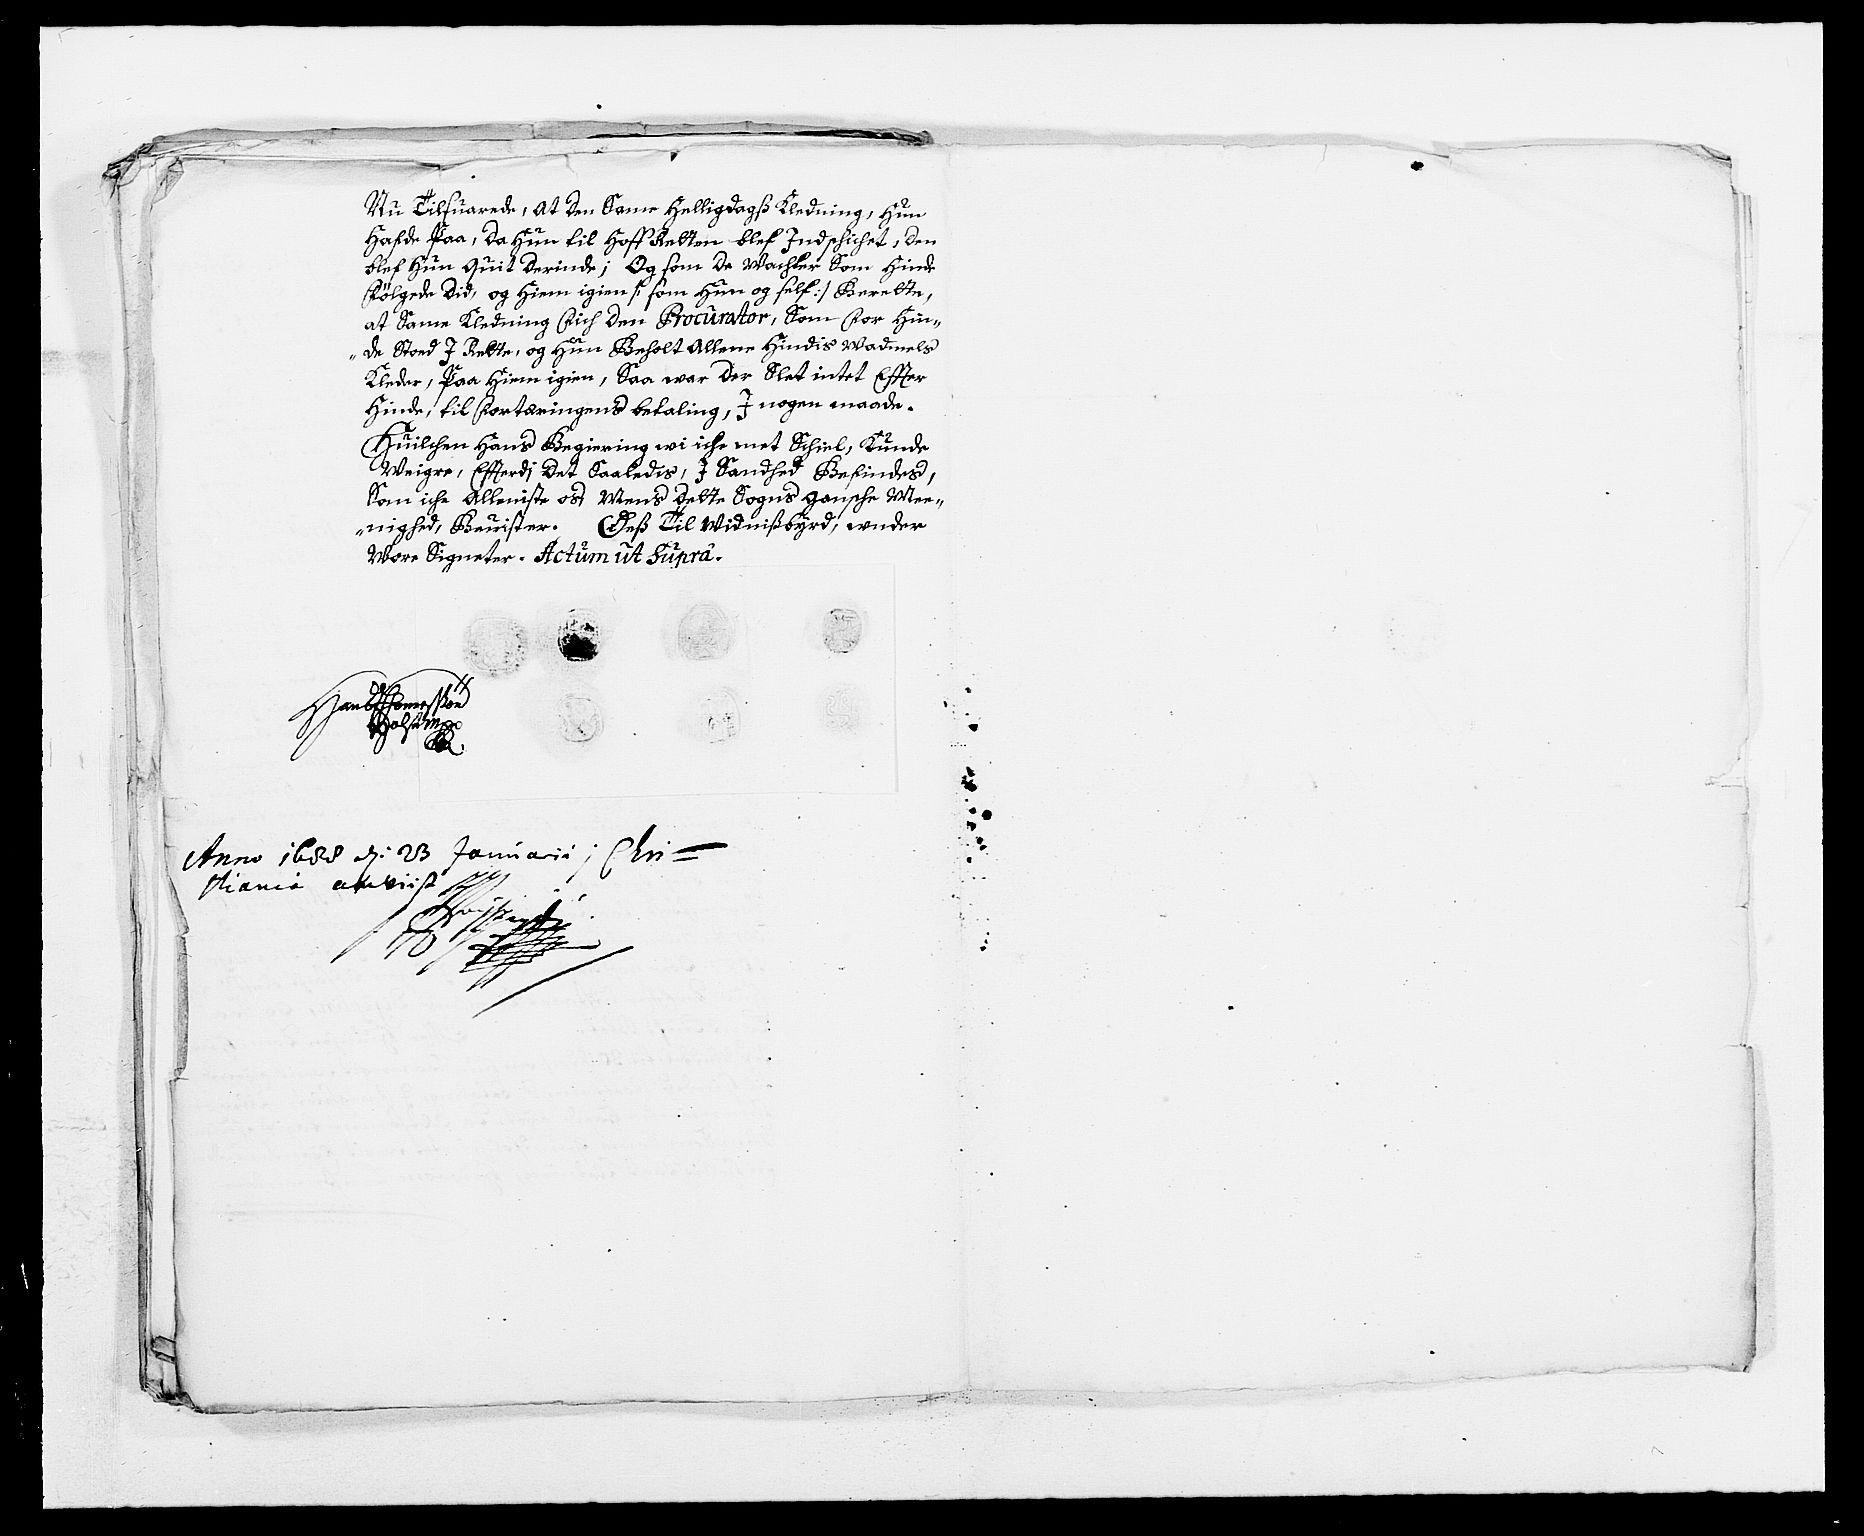 Nu Tilsuarede, at den Same Helligdagß Kledning, Hun
Hafde Paa, da Hun til Hoff Retten blef Indschichet, den
blef Hun quit derinde; Og som de Wachter Som Hinde
Fölgede did, og Hiem igien /: som Hun og self :/ Berette,
at Same Kledning Fich den Procurator, Som For Hin„
„de Stoed I Rette, og Hun Beholt Allene Hindis Wadmels
Kleder, Paa Hiem igien, Saa war der Slet intet Effter
Hinde, til Fortæringens betaling, I nogen maade.
Huilchen Hans Begiering wi iche met Schiel, Kunde
Weigre, Effterdj det Saaledis, I Sandhed Befindes,
Som iche Alleniste os Mens dette Sogns gansche Mee„
„nighed, Beuister. Deß Til Widnißbyrd, wnder
Wore Signeter. Actum ut Supra.
Hans
Holst mpp
Anno 1688 d: 23 Januarii j Chri=
stiania